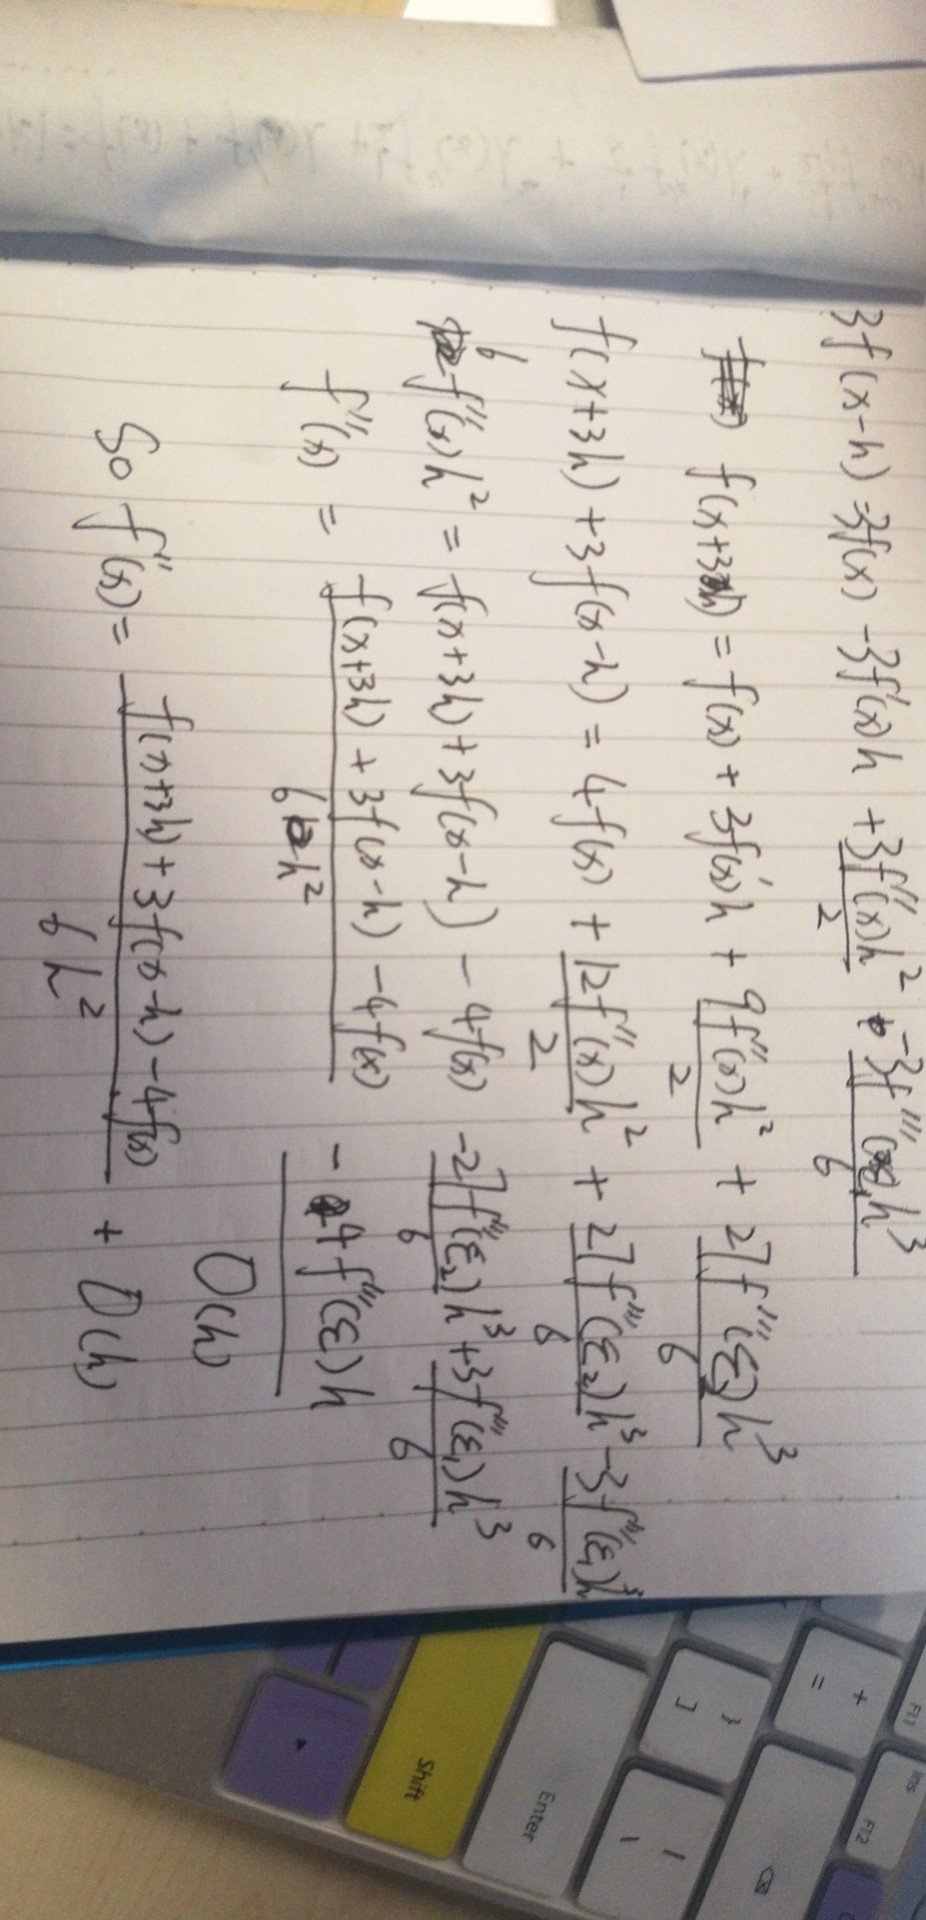 3f(x-h) = 3f(x) - 3f'(x)h + 3f''(x)h²/2 - 3f'''(ε₁)h³/6
f(x+3h) = f(x) + 3f'(x)h + 9f''(x)h²/2 + 27f'''(ε₂)h³/6
f(x+3h) + 3f(x-h) = 4f(x) + 12f''(x)h²/2 + 27f'''(ε₂)h³/6 - 3f'''(ε₁)h³/6
6f''(x)h² = f(x+3h) + 3f(x-h) - 4f(x) - 27f'''(ε₂)h³/6 + 3f'''(ε₁)h³/6
f''(x) = f(x+3h) + 3f(x-h) - 4f(x)/6h² - 4f'''(ε)h
O(h)
So f''(x) = f(x+3h) + 3f(x-h) - 4f(x)/6h² + O(h)
+
=
}
]
|
\
Enter
Shift
F11
F12
Ins